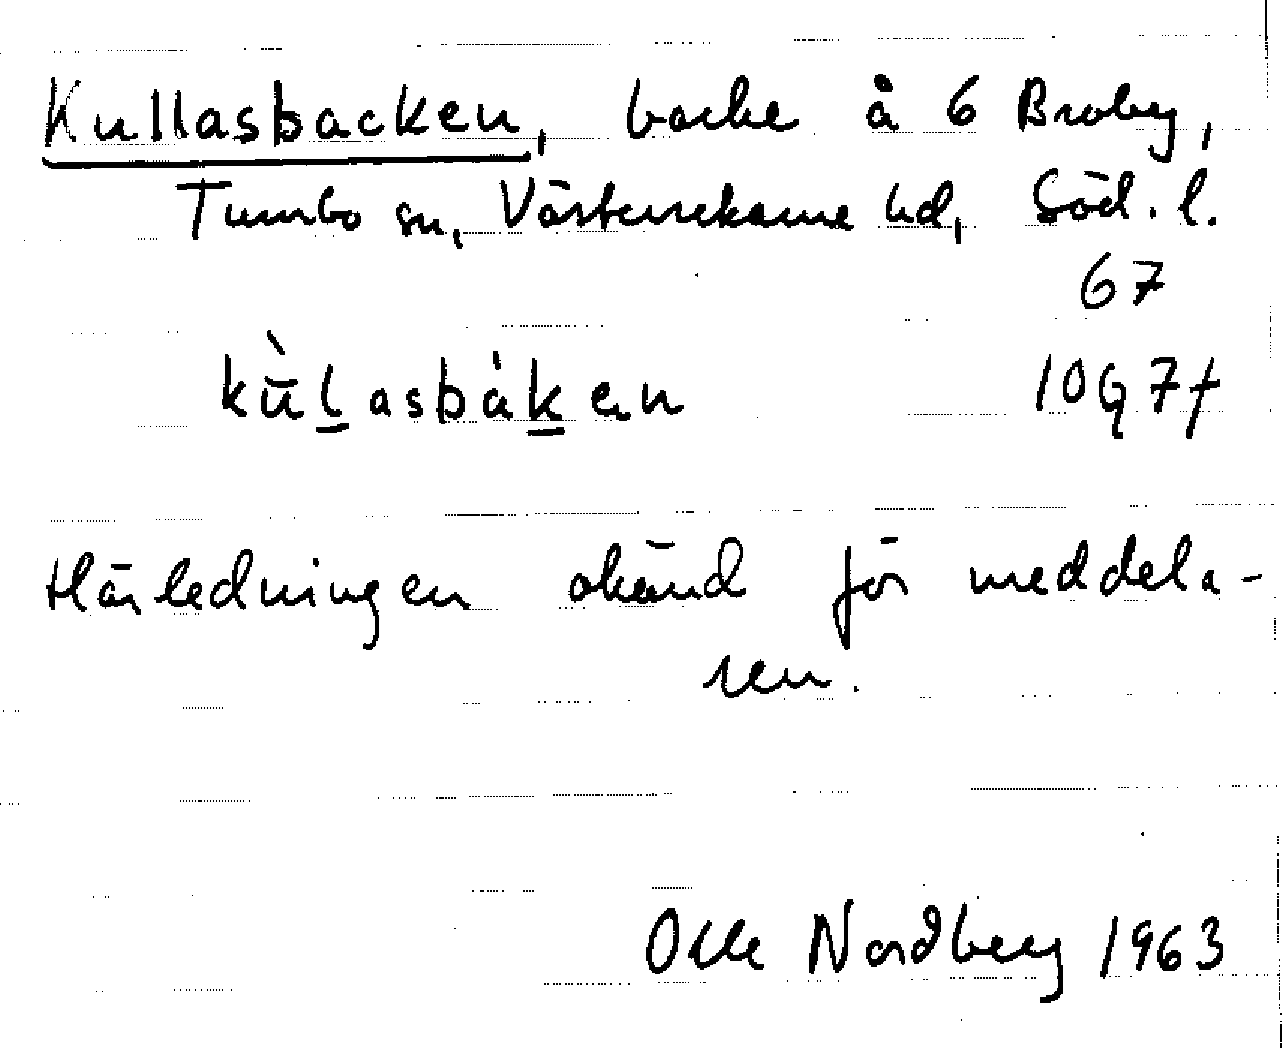 Kullasbacken, backe å 6 Broby,
Tumbo sn, Västerrekarne hd, Söd. l.
67
kū̀l̲asbák̲en 10G7f
Härledningen okänd för meddela-
ren.
Olle Nordberg 1963